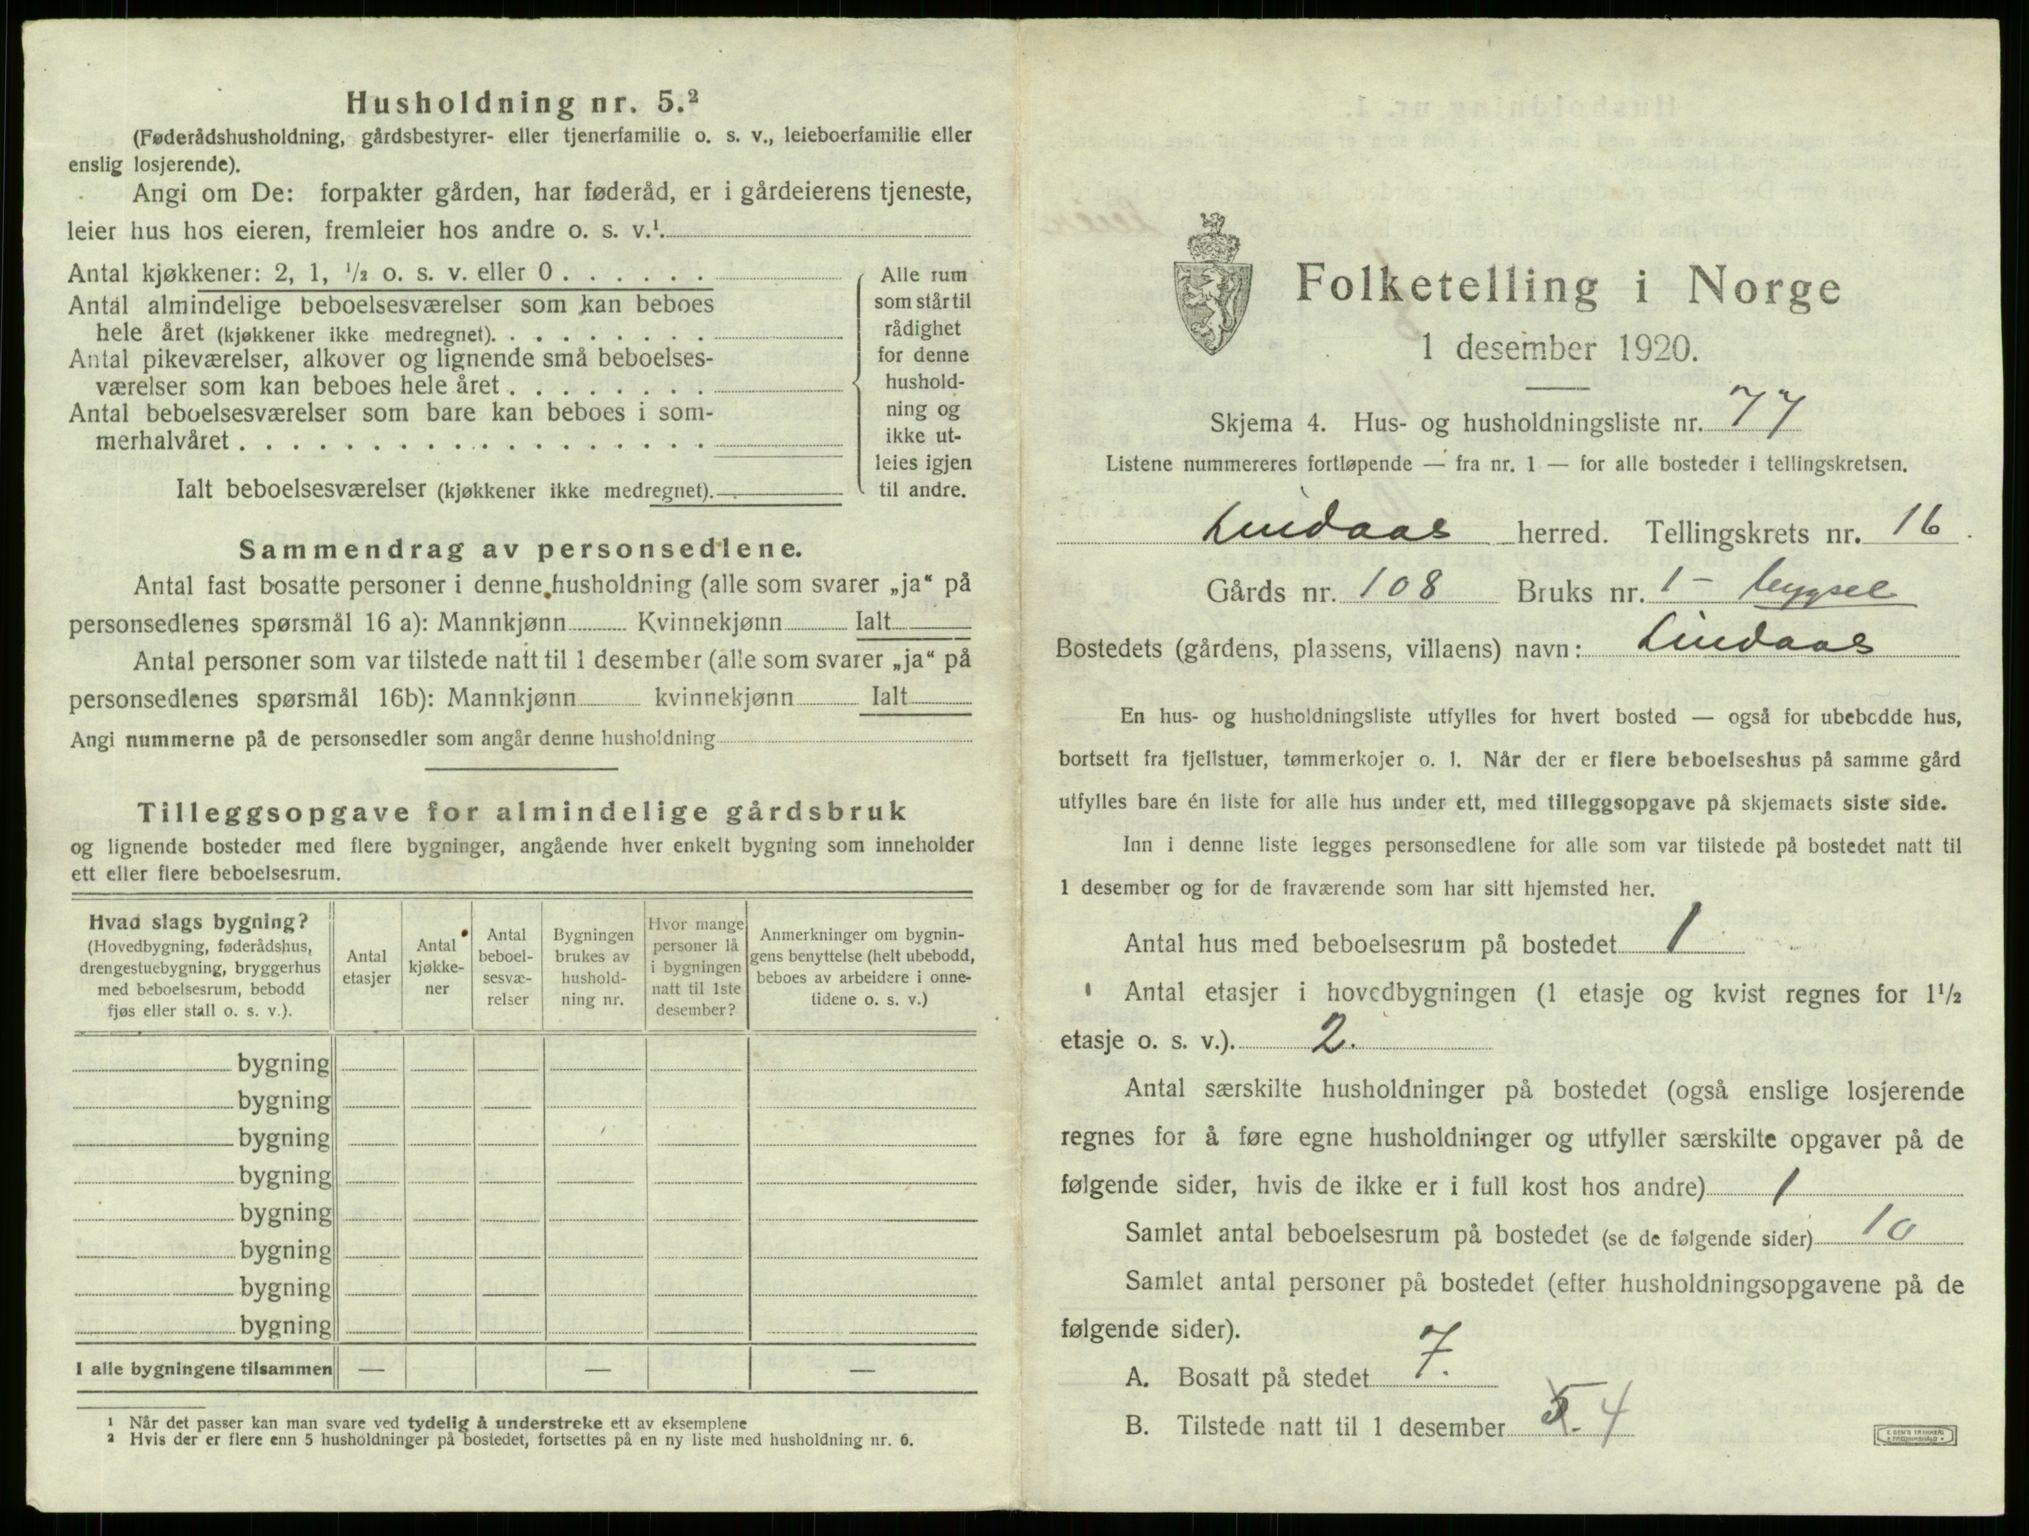 Husholdning nr. 5.²
(Føderådshusholdning, gårdsbestyrer- eller tjenerfamilie o. s. v., leieboerfamilie eller
enslig losjerende).
Angi om De: forpakter gården, har føderåd, er i gårdeierens tjeneste,
leier hus hos eieren, fremleier hos andre o. s. v.¹
Antal kjøkkener: 2, 1, ½ o. s. v. eller 0 . . . . . .
Antal almindelige beboelsesværelser som kan beboes
hele året (kjøkkener ikke medregnet). . . . . . . . .
Antal pikeværelser, alkover og lignende små beboelses-
værelser som kan beboes hele året . . . . . . . .
Antal beboelsesværelser som bare kan beboes i som-
merhalvåret . . . . . . . . . . . . . . . . . .
Ialt beboelsesværelser (kjøkkener ikke medregnet).
Alle rum
som står til
rådighet
for denne
hushold-
ning og
ikke ut-
leies igjen
til andre.
Sammendrag av personsedlene.
Antal fast bosatte personer i denne husholdning (alle som svarer „ja“ på
personsedlenes spørsmål 16 a): Mannkjønn Kvinnekjønn Ialt
Antal personer som var tilstede natt til 1 desember (alle som svarer „ja“ på
personsedlenes spørsmål 16b): Mannkjønn kvinnekjønn Ialt
Angi nummerne på de personsedler som angår denne husholdning
Tilleggsopgave for almindelige gårdsbruk
og lignende bosteder med flere bygninger, angående hver enkelt bygning som inneholder
ett eller flere beboelsesrum.
Hvad slags bygning?
(Hovedbygning, føderådshus,
drengestuebygning, bryggerhus
med beboelsesrum, bebodd
fjøs eller stall o. s. v.).
Antal
etasjer
Antal
kjøkke-
ner
Antal
beboel-
sesvæ-
relser
Bygningen
brukes av
hushold-
ning nr.
Hvor mange
personer lå
i bygningen
natt til 1ste
desember?
Anmerkninger om bygnin-
gens benyttelse (helt ubebodd,
beboes av arbeidere i onne-
tidene o. s. v.)
bygning
bygning
bygning
bygning
bygning
bygning
bygning
bygning
I alle bygningene tilsammen — — —
¹ Når det passer kan man svare ved tydelig å understreke ett av eksemplene
² Hvis der er flere enn 5 husholdninger på bostedet, fortsettes på en ny liste med husholdning nr. 6.
Folketelling i Norge
1 desember 1920.
Skjema 4. Hus- og husholdningsliste nr. 77
Listene nummereres fortløpende — fra nr. 1 — for alle bosteder i tellingskretsen.
Lindaas herred. Tellingskrets nr. 16
Gårds nr. 108 Bruks nr. 1 - bygsel
Bostedets (gårdens, plassens, villaens) navn: Lindaas
En hus- og husholdningsliste utfylles for hvert bosted — også for ubebodde hus,
bortsett fra fjellstuer, tømmerkojer o. l. Når der er flere beboelseshus på samme gård
utfylles bare én liste for alle hus under ett, med tilleggsopgave på skjemaets siste side.
Inn i denne liste legges personsedlene for alle som var tilstede på bostedet natt til
1 desember og for de fraværende som har sitt hjemsted her.
Antal hus med beboelsesrum på bostedet 1
Antal etasjer i hovedbygningen (1 etasje og kvist regnes for 1½
etasje o. s. v.). 2.
Antal særskilte husholdninger på bostedet (også enslige losjerende
regnes for å føre egne husholdninger og utfyller særskilte opgaver på de
følgende sider, hvis de ikke er i full kost hos andre) 1
Samlet antal beboelsesrum på bostedet (se de følgende sider) 10
Samlet antal personer på bostedet (efter husholdningsopgavene på de
følgende sider).
A. Bosatt på stedet 7.
B. Tilstede natt til 1 desember 5. 4